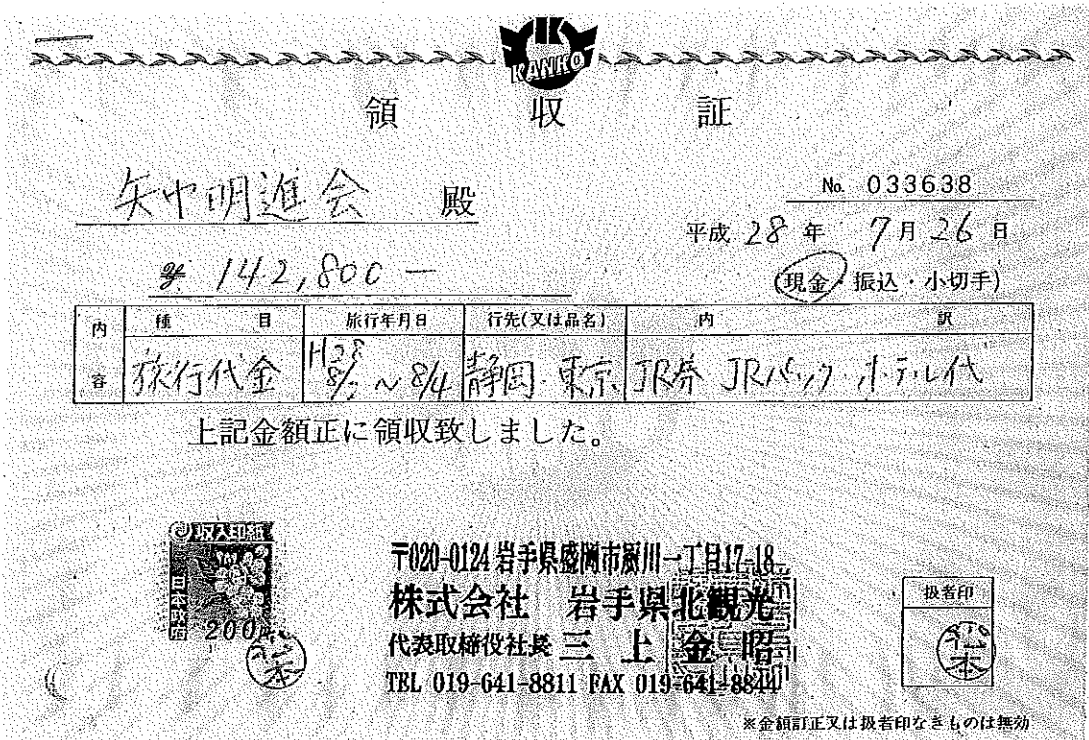 KANKO
領収証
矢中明進会 殿
No. 033638
平成 28 年 7月 26 日
¥ 142,800 —
(現金・振込・小切手)
内容 種目 旅行年月日 行先(又は品名) 内訳
旅行代金 H28 8/2 ~ 8/4 静岡・東京 JR券 JRパック・ホテル代
上記金額正に領収致しました。
収入印紙
日本政府
200円
〒020-0124 岩手県盛岡市厨川一丁目17-18
株式会社 岩手県北観光
代表取締役社長 三上金昭
TEL 019-641-8811 FAX 019-641-8844
扱者印
※金額訂正又は扱者印なきものは無効